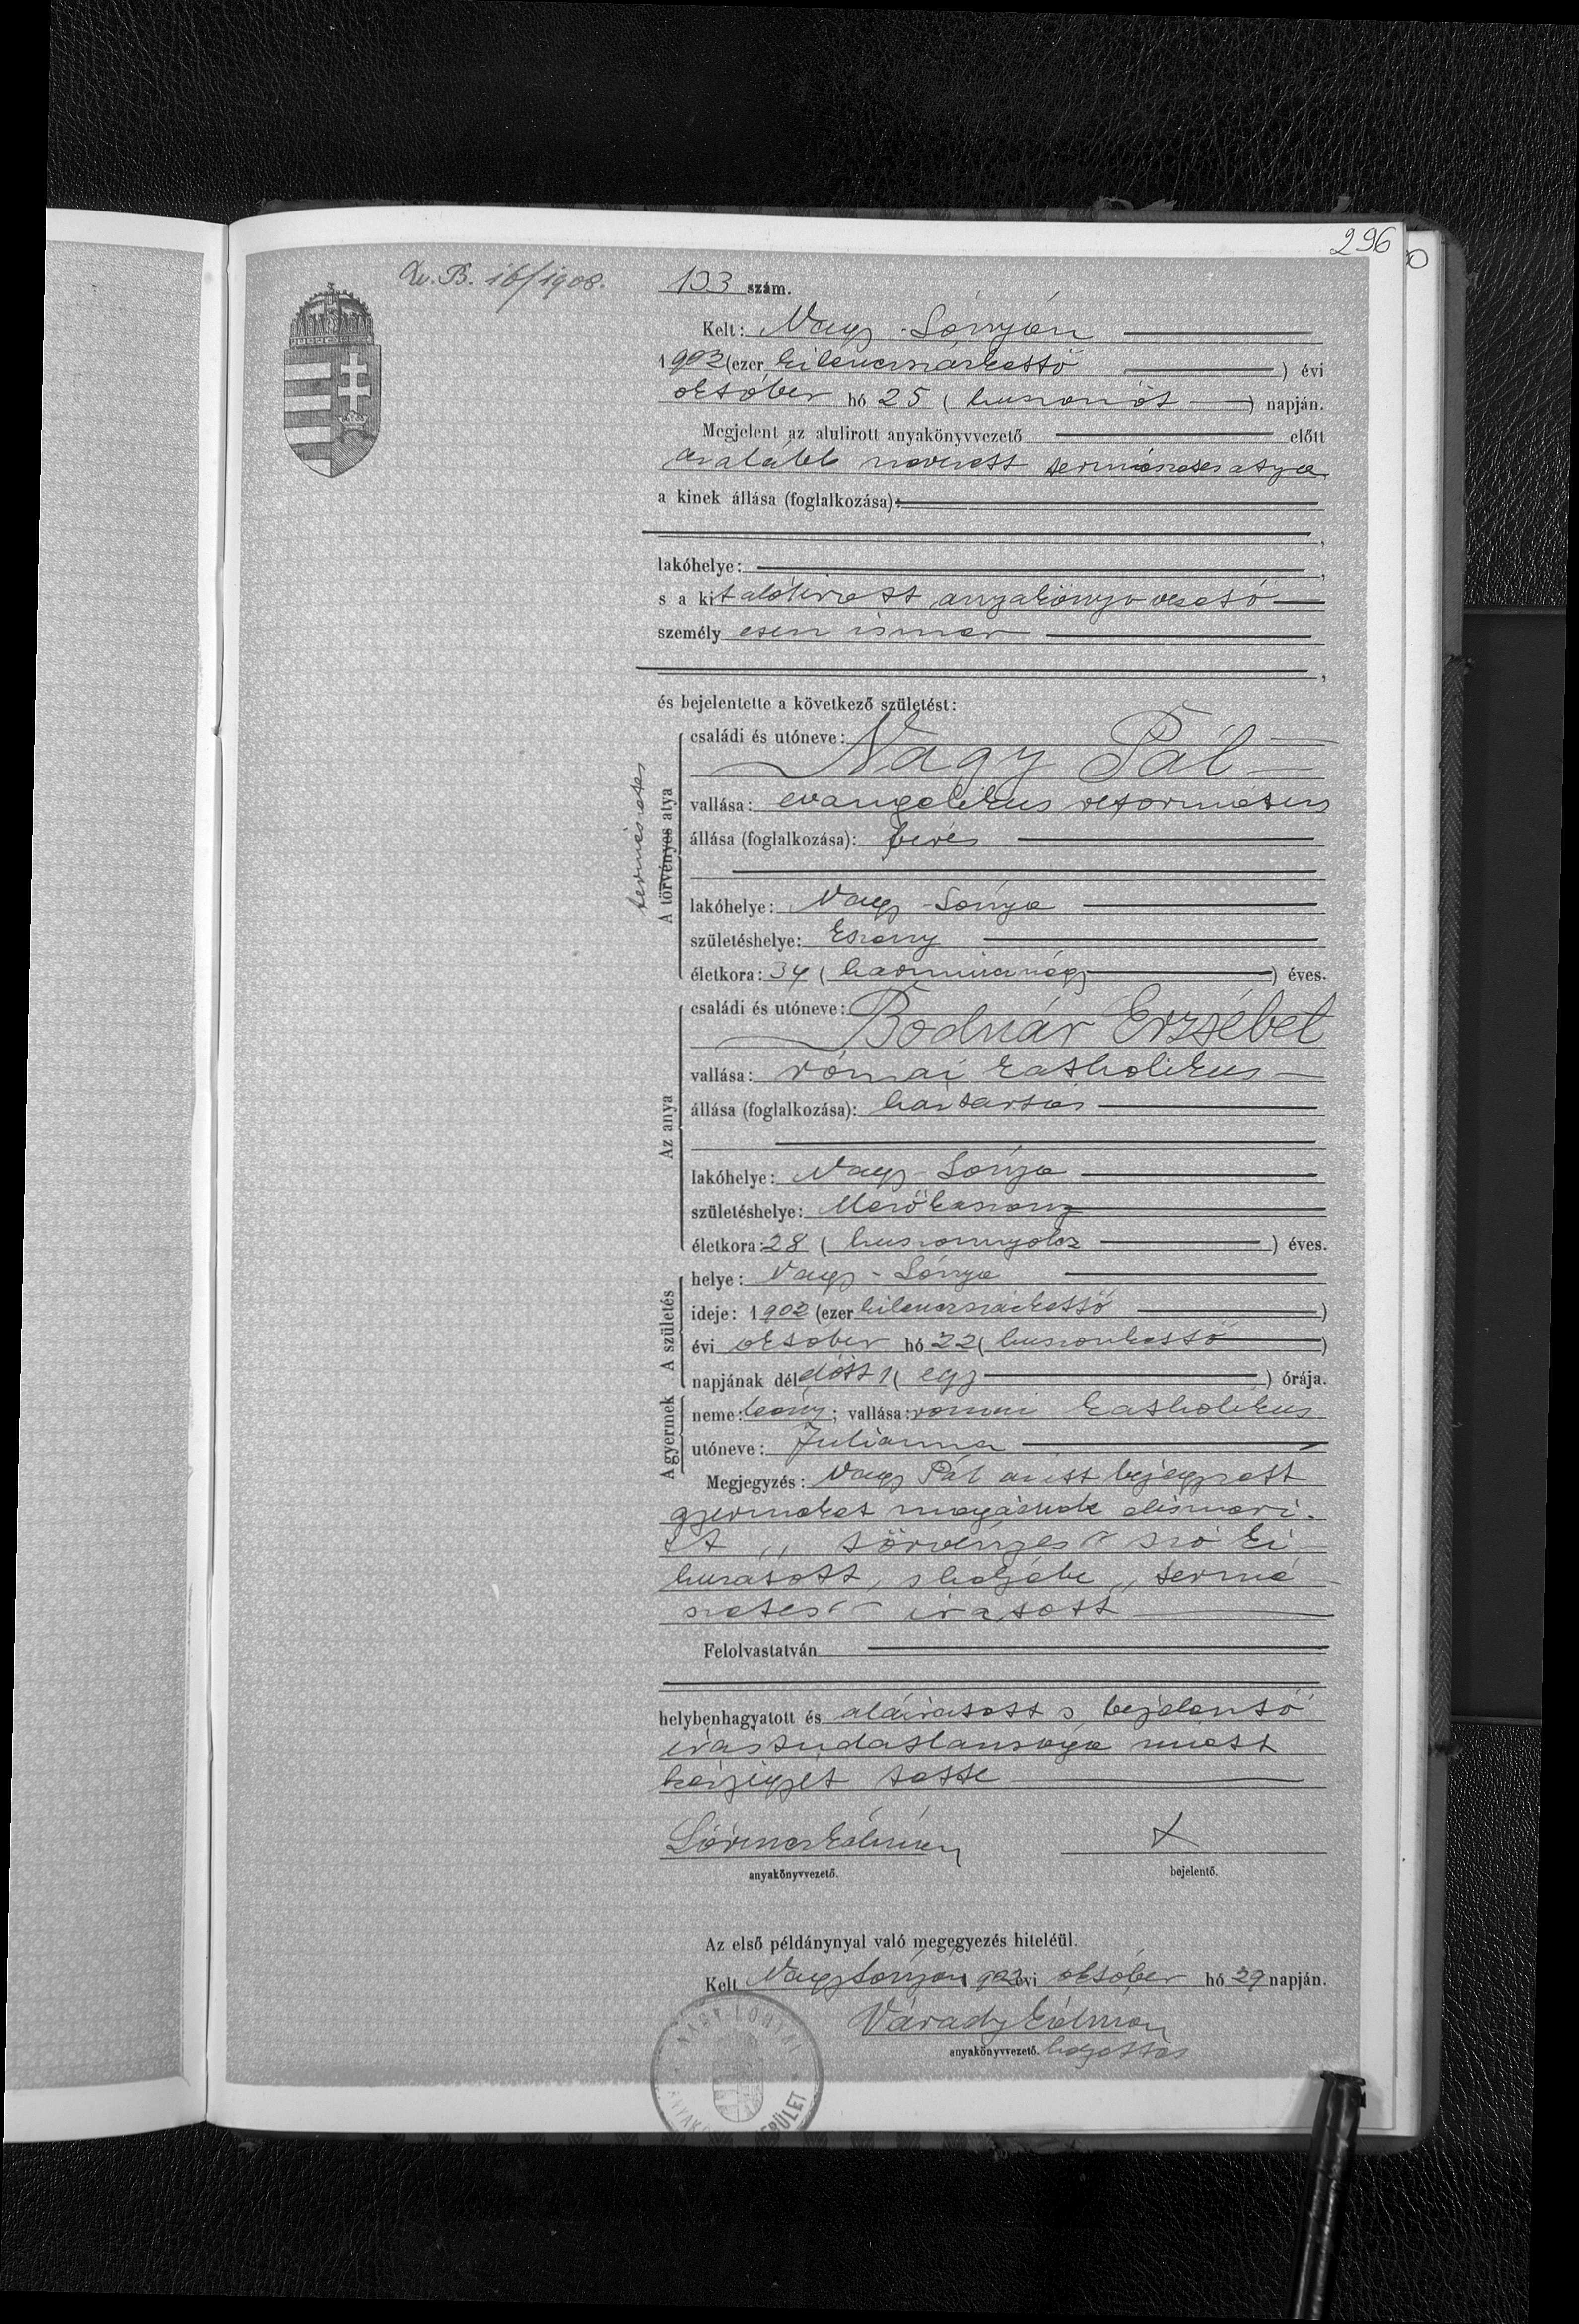 296
Lv. B. 16/1908.
133 szám.
Kelt: Nagy-Lónyán
1902 (ezer kilenczszázkettő ) évi
október hó 25 ( huszonöt ) napján.
Megjelent az alulirott anyakönyvvezető előtt
az alább nevezett természetes atya
a kinek állása (foglalkozása):
lakóhelye: ,
s a kit alólirott anyakönyvvezető
személyesen ismer
,
és bejelentette a következő születést:
természetes
A törvényes atya
családi és utóneve:
Nagy Pál
vallása: evangelikus református
állása (foglalkozása): béres
lakóhelye: Nagy-Lónya
születéshelye: Eszeny
életkora: 34 ( harmincznégy ) éves.
Az anya
családi és utóneve:
Bodnár Erzsébet
vallása: római katholikus
állása (foglalkozása): háztartás
lakóhelye: Nagy-Lónya
születéshelye: Mezőkaszony
életkora: 28 ( huszonnyolcz ) éves.
A születés
helye: Nagy-Lónya
ideje: 1902 (ezer kilenczszázkettő )
évi október hó 22 ( huszonkettő )
napjának délelőtt 1 ( egy ) órája.
A gyermek
neme: leány; vallása: római katholikus
utóneve: Julianna
Megjegyzés: Nagy Pál az itt bejegyzett
gyermeket magáénak elismeri.
A „törvényes" szó ki
huzatott, s helyébe „termé
szetes" iratott
Felolvastatván
helybenhagyatott és aláiratott s bejelentő
irástudatlansága miatt
kézjegyét tette
Lőrincz Kálmán
anyakönyvvezető.
X
bejelentő.
Az első példánynyal való megegyezés hiteléül.
Kelt Nagylónyán 1902 évi október hó 29 napján.
Várady Kálmán
anyakönyvvezető. helyettes
NAGY-LÓNYAI